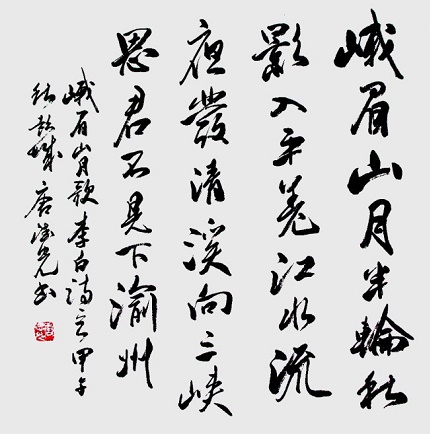 峨眉山月半輪秋
影入平羌江水流
夜發清溪向三峡
思君不見下渝州
峨眉山月歌李白詩之甲午
秋城唐光书